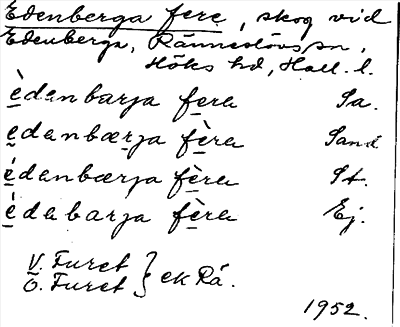 Edenberga fere, skog vid
Edenberga, Ränneslövs sn,
Höks hd, Hall. l.
èdanbarja fera Sa.
edanbærja fèra Sand
édanbærja fèra St.
édabarja fèra Ej.
V. Furet } ek Rä.
Ö. Furet
1952.